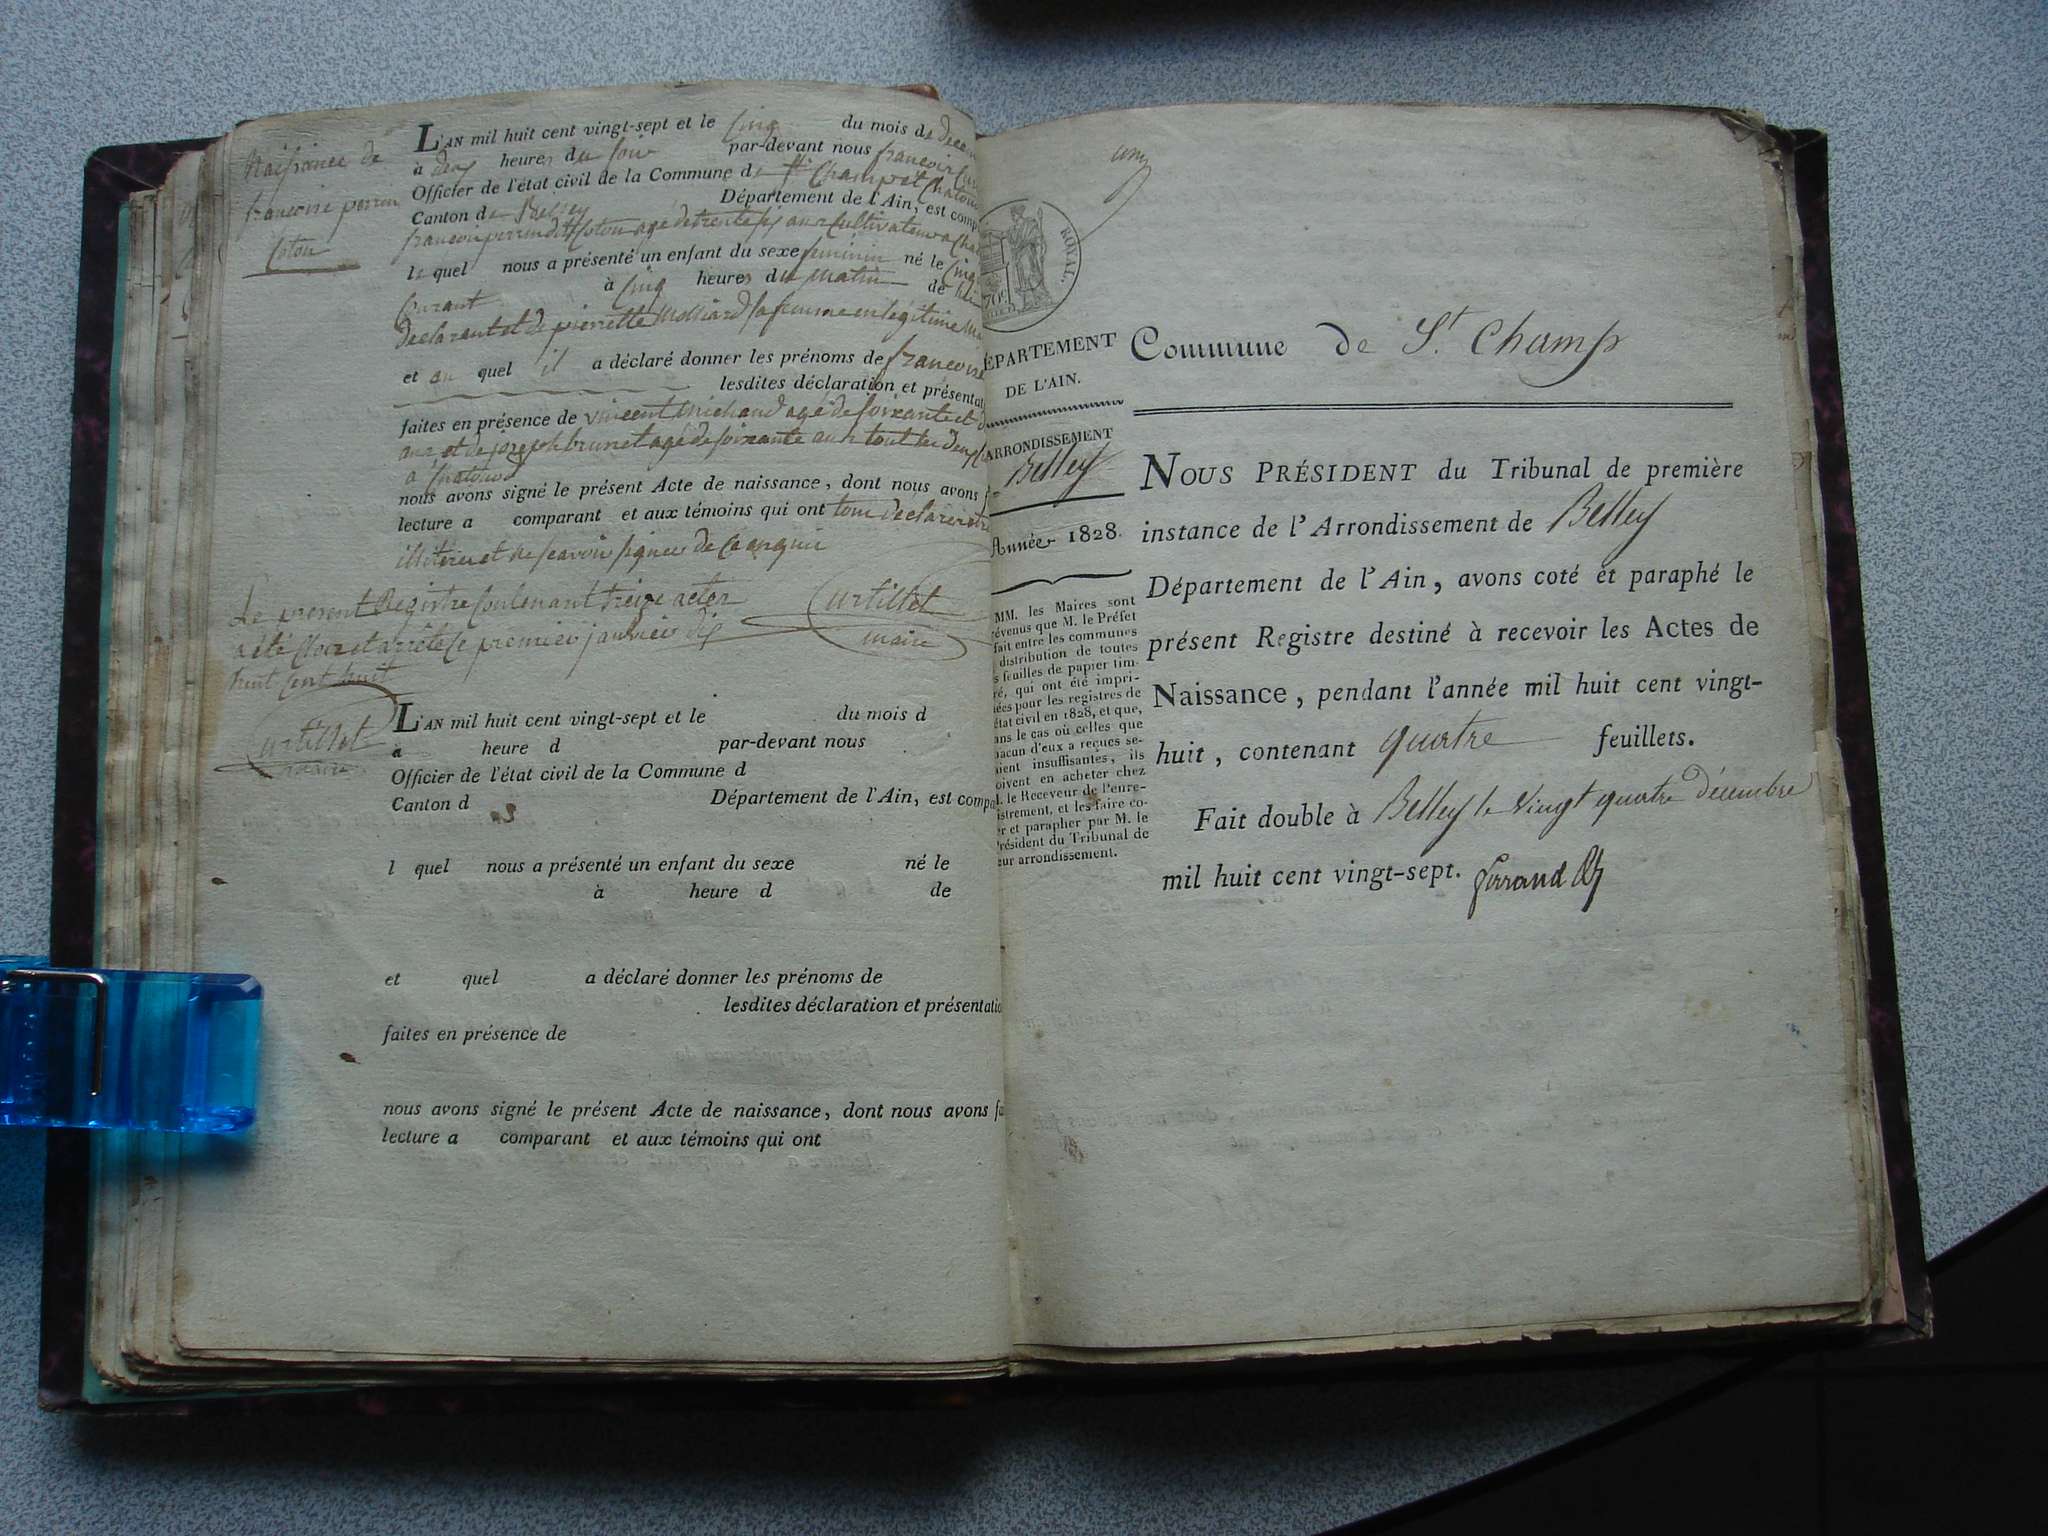 Naissance de
francoise perrin
Coton
L'AN mil huit cent vingt-sept et le Cinq du mois de decem
à deux heures du soir par-devant nous francois Cur
Officier de l'état civil de la Commune de St Champ et Chatonod
Canton de Belley Département de l'Ain, est comp
francois perrin dit Coton agé de trente six ans Cultivateur a Cha
le quel nous a présenté un enfant du sexe feminin né le Cinq
Courant à Cinq heures du matin de lui
declarant et de pierrette Molliard sa femme en légitime ma
et au quel il a déclaré donner les prénoms de francoise
lesdites déclaration et présentat
faites en présence de vincent Michaud agé de soixante et d
ans et de joseph brunet agé de soixante ans tout les deux
a Chatonod
nous avons signé le présent Acte de naissance, dont nous avons f
lecture a comparant et aux témoins qui ont tous declarer etre
illiterer et ne scavoir signer de Ce enquis
Curtillet
maire
Le present Registre Contenant treize acter
a été Clos et arrêté le premier janvier dix
huit Cent huit
Curtillet
maire
L'AN mil huit cent vingt-sept et le du mois d
à heure d par-devant nous
Officier de l'état civil de la Commune d
Canton d Département de l'Ain, est compa
l quel nous a présenté un enfant du sexe né le
à heure d de
et quel a déclaré donner les prénoms de
lesdites déclaration et présentatio
faites en présence de
nous avons signé le présent Acte de naissance, dont nous avons fa
lecture a comparant et aux témoins qui ont
ROYAL.
70c
ÉPARTEMENT
DE L'AIN.
ARRONDISSEMENT
Belley
Année 1828.
MM. les Maires sont
révenus que M. le Préfet
fait entre les communes
distribution de toutes
s feuilles de papier tim-
ré, qui ont été impri-
ées pour les registres de
état civil en 1828, et que,
ans le cas où celles que
acun d'eux a reçues se-
aient insuffisantes, ils
oivent en acheter chez
I. le Receveur de l'enre-
istrement, et les faire co-
er et parapher par M. le
Président du Tribunal de
eur arrondissement.
Commune de St. Champ
NOUS PRÉSIDENT du Tribunal de première
instance de l'Arrondissement de Belley
Département de l'Ain, avons coté et paraphé le
présent Registre destiné à recevoir les Actes de
Naissance, pendant l'année mil huit cent vingt-
huit, contenant quatre feuillets.
Fait double à Belley le Vingt quatre décembre
mil huit cent vingt-sept. Ferrand